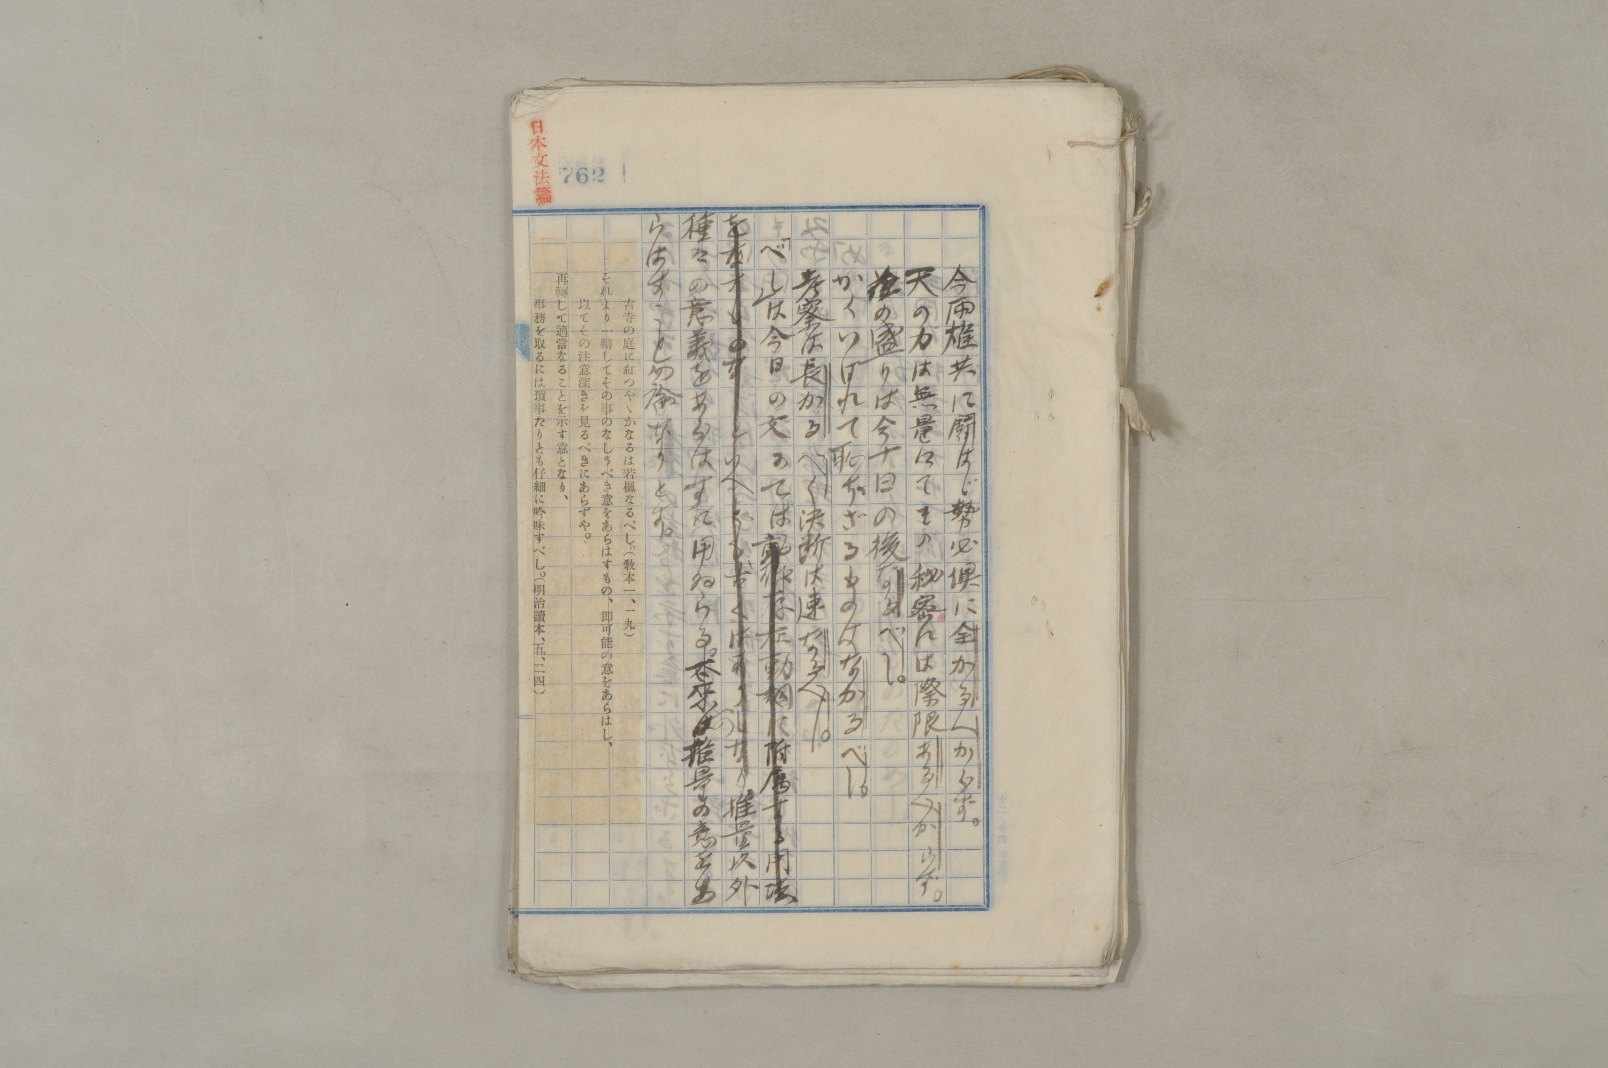 日本文法論
762
今両雄共に闘はゞ勢必倶に全かるべからず。
天の力は無量にてその秘密には際限あるべからず。
の盛りは今十日の後なるべし。
かくいはれて恥ぢざるものはなかるべし。
考察は長かるべく決断は速なるべし。
「べし」は今日の文にては 存在動詞に附属する用法
をなすものす といへ 推量以外
種々の意義をあらはすに用ゐらる。本来は推量の意をあ
らはすこと勿論なりとす。
古寺の庭に紅つやゝかなるは若楓なるべし。(教本一、一九)
それより一轉してその事のなしうべき意をあらはすもの、即可能の意をあらはし、
以てその注意深きを見るべきにあらずや。
再轉して適當なることを示す意となり、
事務を取るには瑣事たりとも仔細に吟味すべし。(明治讀本、五、二四)